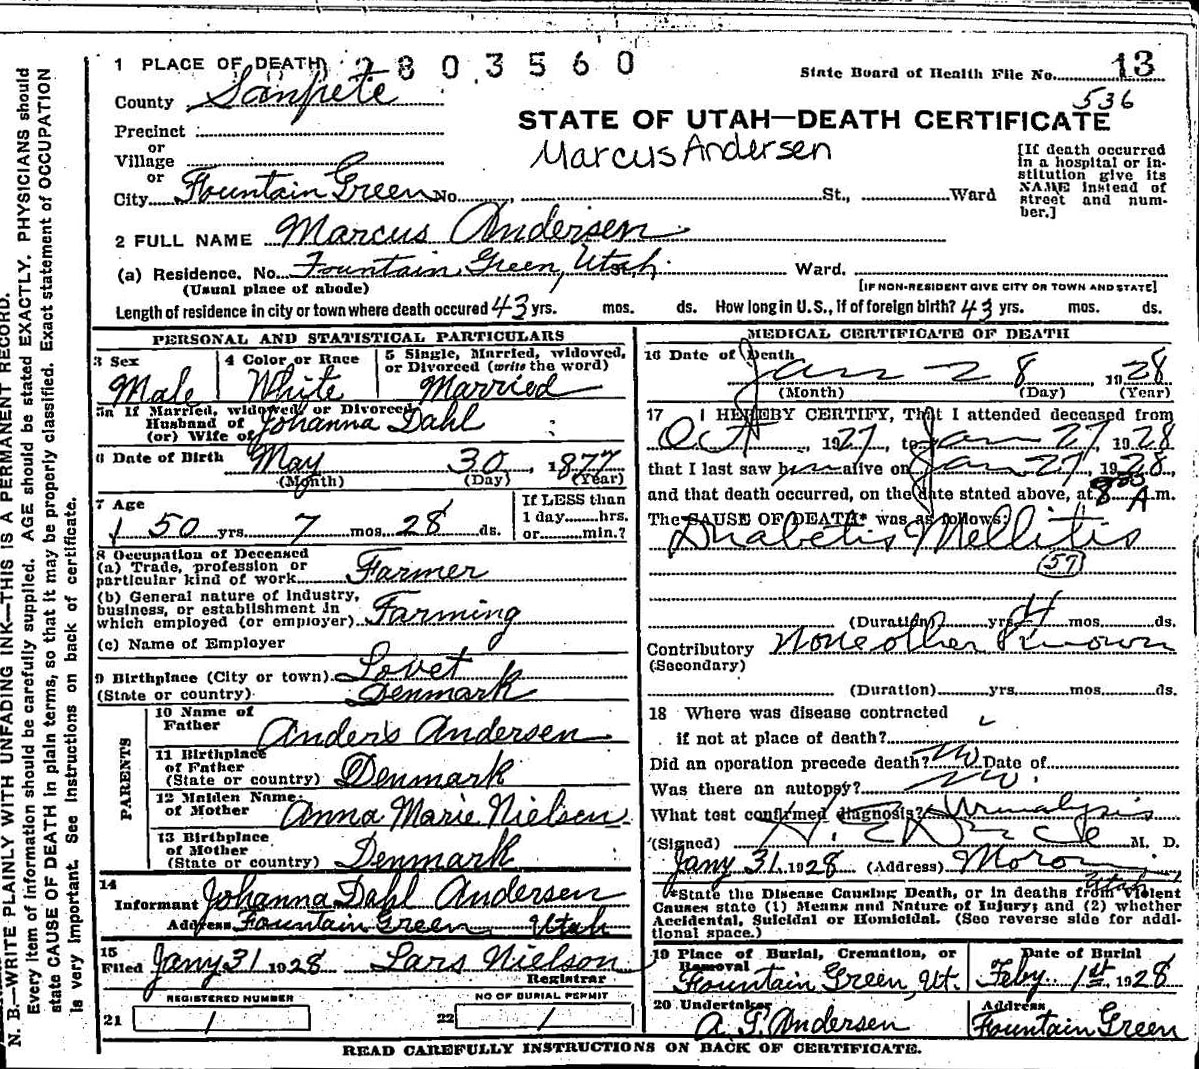 1 PLACE OF DEATH 2803560
State Board of Health File No. 13
536
County Sanpete
STATE OF UTAH—DEATH CERTIFICATE
Marcus Andersen
Precinct
or
Village
or
City Fountain Green No. St., Ward
[If death occurred in a hospital or institution give its NAME instead of street and number.]
2 FULL NAME Marcus Andersen
(a) Residence. No. Fountain Green, Utah. Ward.
(Usual place of abode) [IF NON-RESIDENT GIVE CITY OR TOWN AND STATE]
Length of residence in city or town where death occured 43 yrs. mos. ds. How long in U.S., if of foreign birth? 43 yrs. mos. ds.
PERSONAL AND STATISTICAL PARTICULARS
3 Sex Male
4 Color or Race White
5 Single, Married, widowed, or Divorced (write the word) Married
5a If Married, widowed, or Divorced
Husband of
(or) Wife of Johanna Dahl
6 Date of Birth May 30, 1877
(Month) (Day) (Year)
7 Age
50 yrs. 7 mos. 28 ds.
If LESS than
1 day......hrs.
or......min.?
8 Occupation of Deceased
(a) Trade, profession or
particular kind of work Farmer
(b) General nature of Industry,
business, or establishment in
which employed (or employer) Farming
(c) Name of Employer
9 Birthplace (City or town) Lovet
(State or country) Denmark
PARENTS
10 Name of
Father Anders Andersen
11 Birthplace
of Father
(State or country) Denmark
12 Maiden Name
of Mother Anna Marie Nielsen
13 Birthplace
of Mother
(State or country) Denmark
14
Informant Johanna Dahl Andersen
Address Fountain Green, Utah
15
Filed Jany 31 1928 Lars Nielson
Registrar
REGISTERED NUMBER
21 1
NO OF BURIAL PERMIT
22 1
MEDICAL CERTIFICATE OF DEATH
16 Date of Death
Jan 28 1928
(Month) (Day) (Year)
17 I HEREBY CERTIFY, That I attended deceased from
Oct, 1927, to Jan 27 1928
that I last saw him alive on Jan 27, 1928,
and that death occurred, on the date stated above, at 8 A.m.
The CAUSE OF DEATH* was as follows:
Diabetis Mellitis
57
(Duration) yrs. 4 mos. ds.
Contributory None other Known
(Secondary)
(Duration) yrs. mos. ds.
18 Where was disease contracted
if not at place of death?
Did an operation precede death? No Date of
Was there an autopsy? No
What test confirmed diagnosis? Urinalysis
(Signed) M. D.
Jany 31. 1928 (Address) Moroni, Utah
*State the Disease Causing Death, or in deaths from Violent
Causes state (1) Means and Nature of Injury; and (2) whether
Accidental, Suicidal or Homicidal. (See reverse side for additional space.)
19 Place of Burial, Cremation, or
Removal
Fountain Green, Ut.
Date of Burial
Feby 1st 1928
20 Undertaker
A. J. Andersen
Address
Fountain Green
READ CAREFULLY INSTRUCTIONS ON BACK OF CERTIFICATE.
N. B.—WRITE PLAINLY WITH UNFADING INK—THIS IS A PERMANENT RECORD.
Every item of information should be carefully supplied. AGE should be stated EXACTLY. PHYSICIANS should
state CAUSE OF DEATH in plain terms, so that it may be properly classified. Exact statement of OCCUPATION
is very important. See instructions on back of certificate.